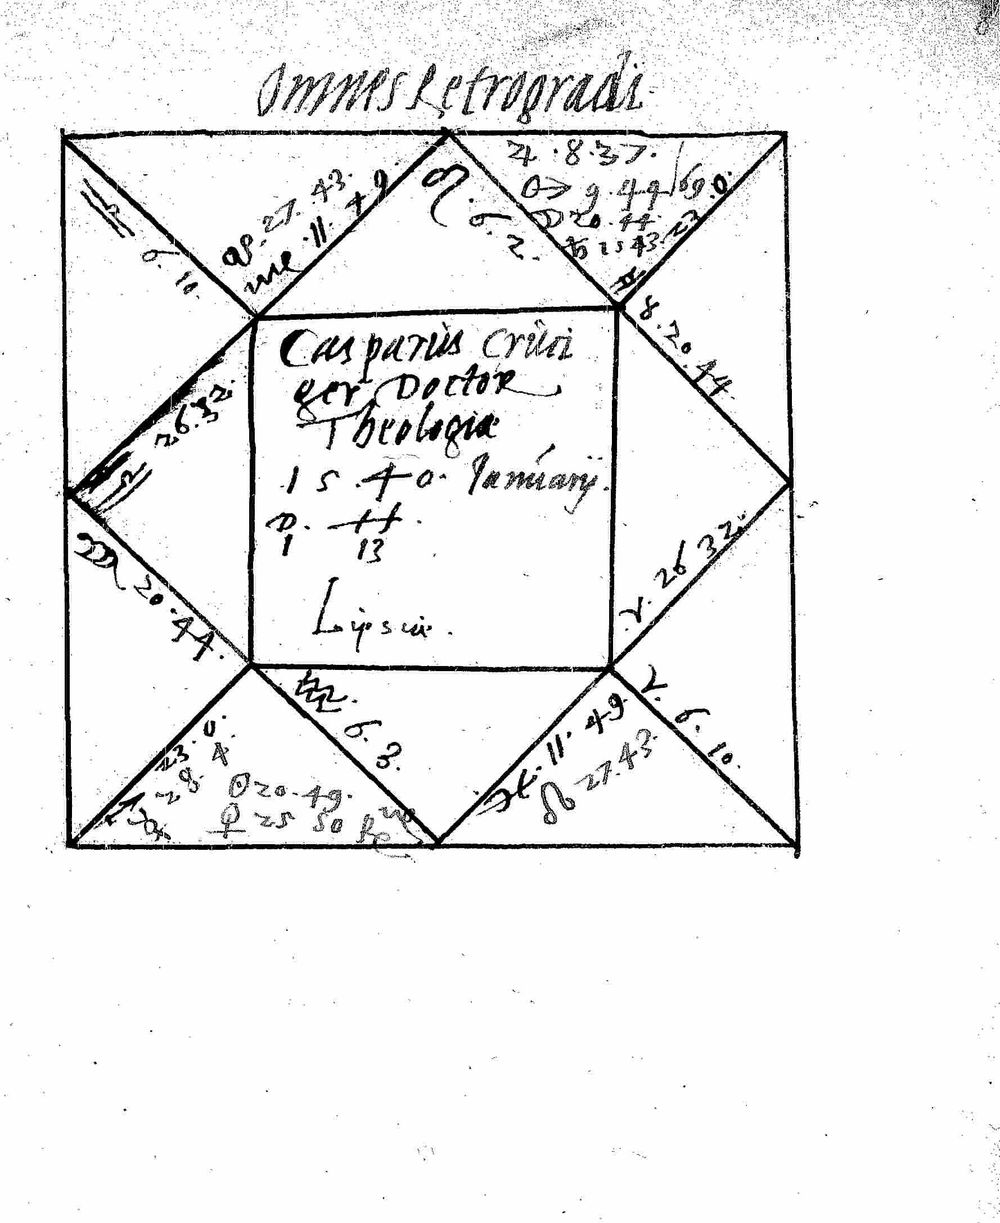 Omnes Retrogradi
♃ . 8 . 37 .
♂ 9 . 44
☽ 20 . 44
♄ 25 43
♋ 9 . 0
23
☋ . 27 . 43 .
♍ . 11 . 49
♌ . 6 . 2 .
♎ 6 . 10 .
♉ . 20 . 44
♎ 26 . 32 .
Casparus Cruci
ger Doctor
Theologiæ
1 5 4 0 . Januarij .
D . H .
1 13
Lipsiæ .
♏ 20 . 44 .
♈ . 26 32 .
♒ 6 . 3 .
♈ . 6 . 10 .
♓ . 11 . 49 .
☊ 27 . 43 .
♐ 23 . 0 .
28 . 4
☉ 20 . 49 .
♀ 25 50 Re